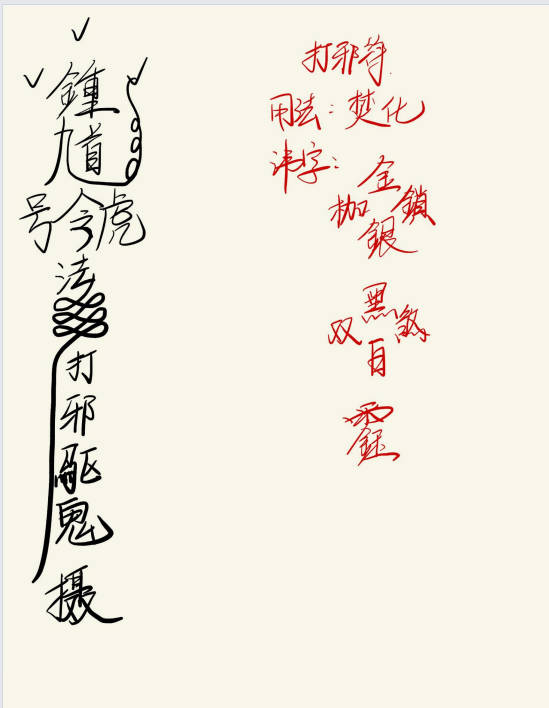 鍾
馗
号令虎
法
打
邪
驱
鬼
摄
打邪符
用法：焚化
讳字：
金
枷 鎖
銀
黑
双 煞
目